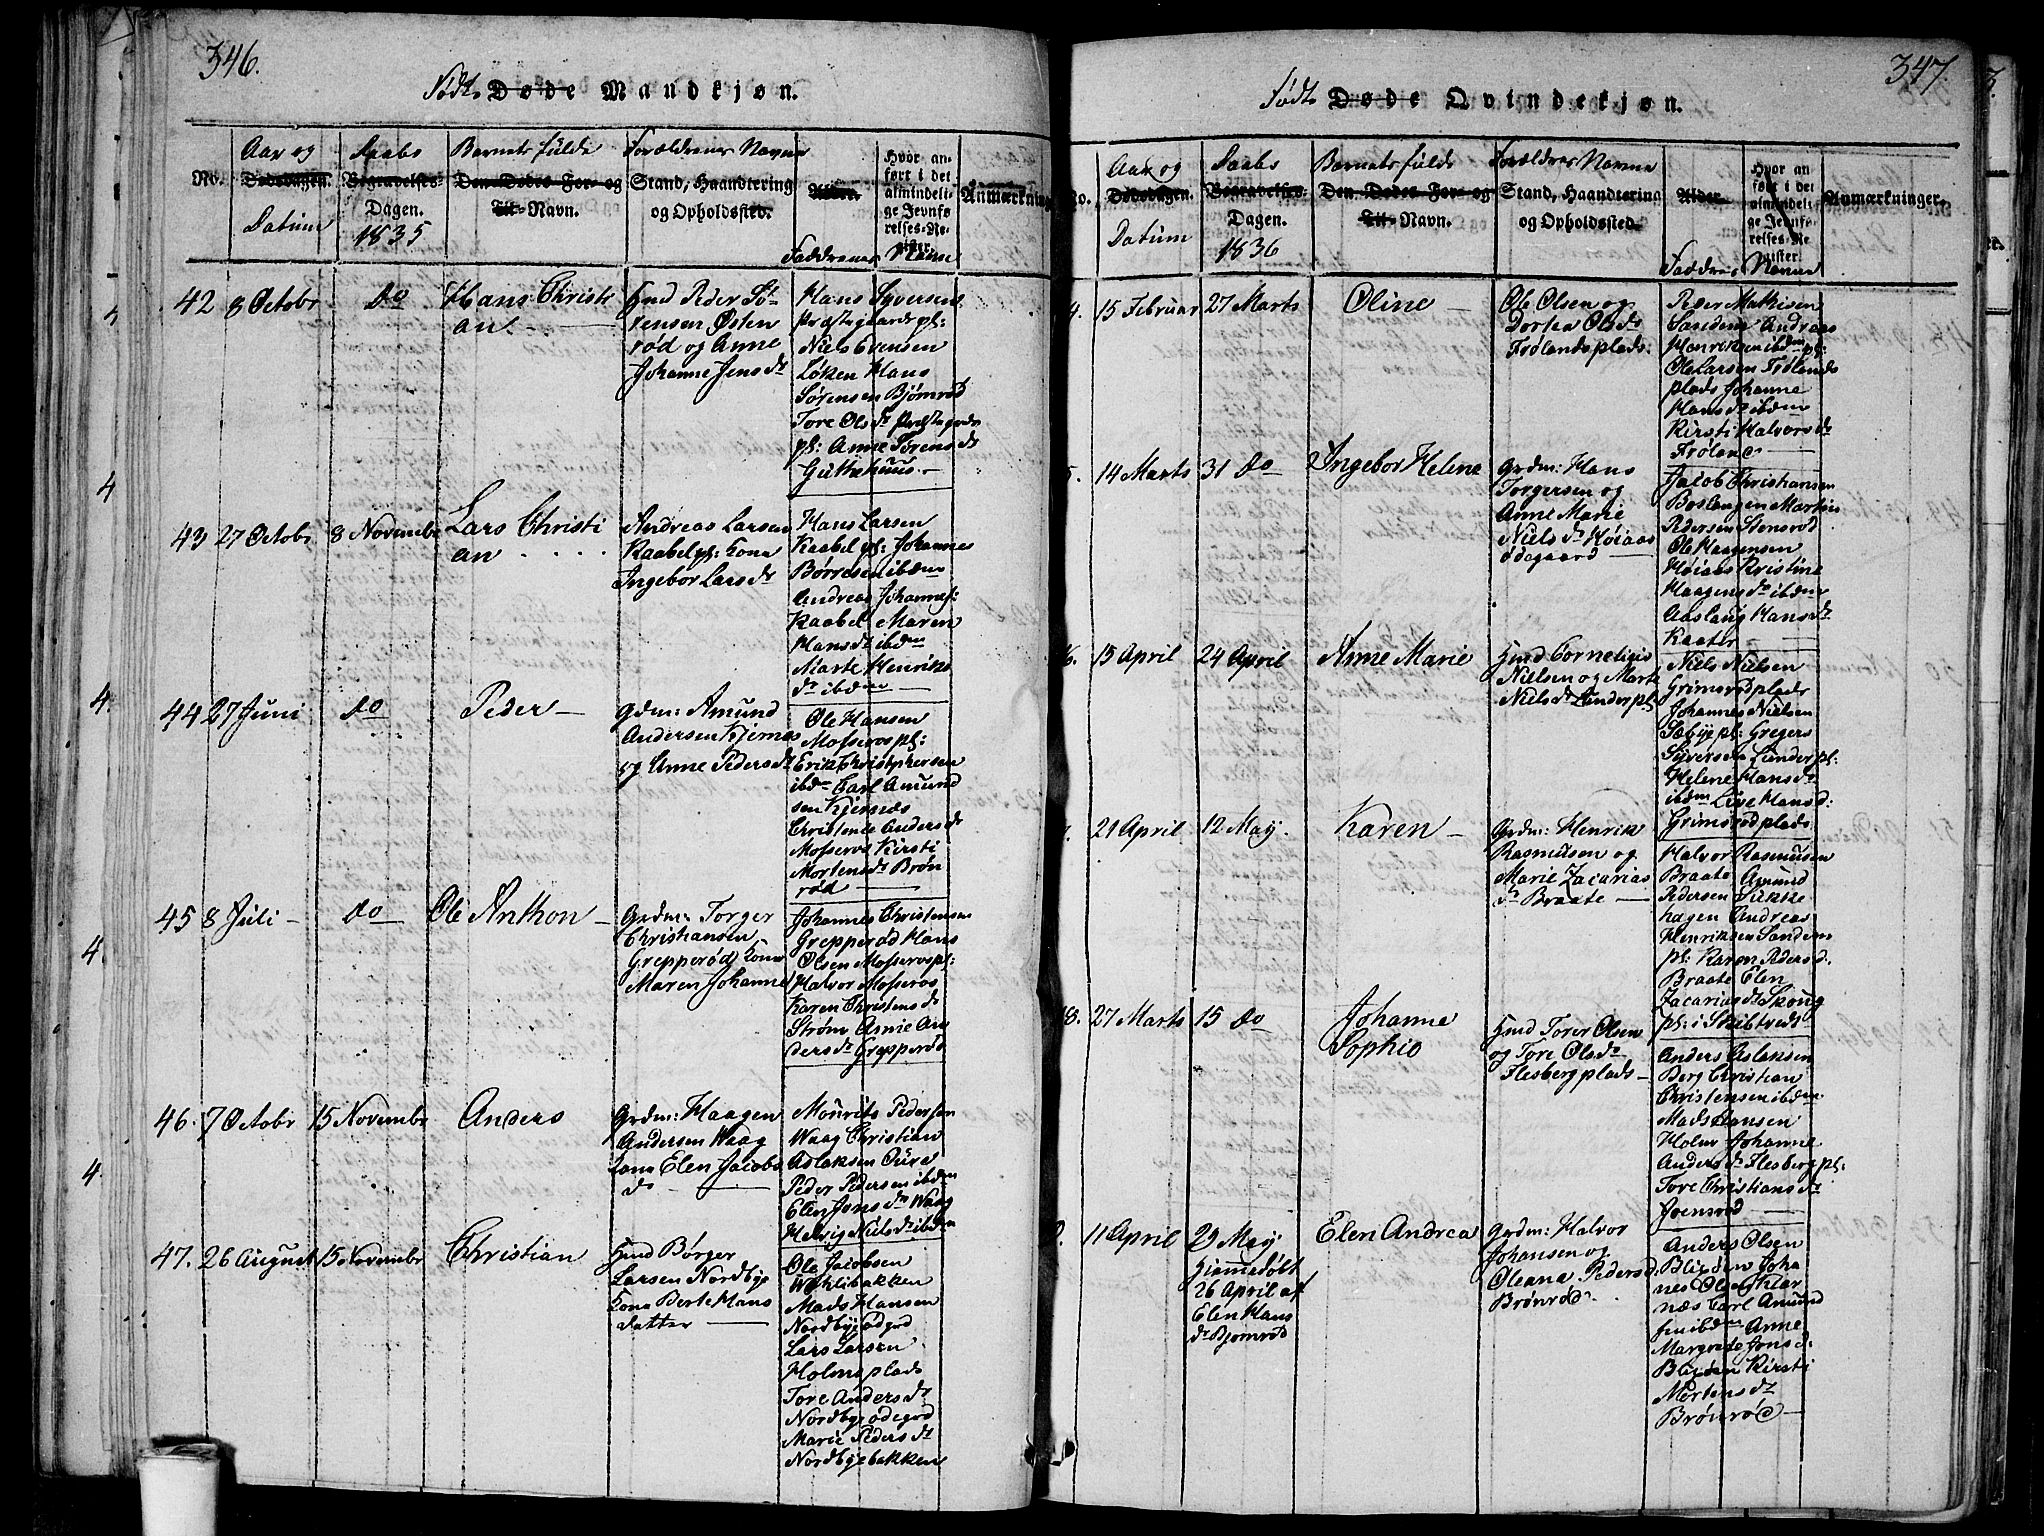 346.
Født Døde Mandkjøn.
No.
Aar og
Dødsdagen.
Datum
Daabs
Begravelses-
Dagen.
1835
Barnets fulde
Den Dødes For- og
Til-Navn.
Forældrenes Navne
Stand, Haandtering
og Opholdssted.
Alder.
Faddrenes Navne
Hvor an-
ført i det
almindeli-
ge Jevnfø-
relses-Re-
gister.
Anmærkning
42 8 Octobr do Hans Christi
an.
Gmd Peder Sø-
rensen Østen
rød og Anne
Johanne Jens dr
Hans Syversen
Præstegaards pl:
Niels Evensen
Løken Hans
Sørensen Bjørnrød
Tore Ols dr Præstegrds
pl: Anne Sørens dr
Guttehuus.
43 27 Octobr 8 Novembr Lars Christi
an
Andreas Larsen
Kaabel pl: Kona
Ingebor Lars dr
Hans Larsen
Kaabel pl: Johannes
Børresen ibdm
Andreas Johannes:
Kaabel Maren
Hans dr ibdm
Marte Henriks
dr ibdm
44 27 Juni do Peder
Grdm: Amund
Andersen Kjernes
og Anne Peders dr
Ole Hansen
Mosseros pl:
Erik Christophersen
ibdm Carl Amund
sen Kjernæs
Christence Anders dr
Mosseros Kirsti
Mortens dr Brøn
rød
45 8 Juli do Ole Anthon
Grdm: Torger
Christiansen
Grepperød Kona
Maren Johanne
Johannes Christensen
Grepperød Hans
Olsen Mosseros pl:
Halvor Mosseros
Karen Christens dr
Strøm Anne An
ders dr Grepperød
46. 7 Octobr 15 Novembr Anders
Grdm: Haagen
Andersen Waag
Kona Elen Jacobs
d
Mourits Pedersen
Waag Christian
Aslaksen Oure
Peder Pedersen ibdm
Elen Jons dr Waag
Helvig Niels dr ibdm
47. 26 August 15 Novembr Christian
Gmd Børger
Larsen Nordbye
Kona Berte Hans
datter
Ole Jacobsen
Wohlibakken
Mads Hansen
Nordbyødegrd
Lars Larsen
Holms plads
Tore Anders dr
Nordbyeødegrd
Marie Peders dr
Nordbyebakken
347.
Født Døde Qvindekjøn.
No.
Aar og
Dødsdagen.
Datum
Daabs
Begravelses-
Dagen.
1836
Barnets fulde
Den Dødes For- og
Til-Navn.
Forældres Navne
Stand, Haandtering
og Opholdssted.
Alder.
Faddres Navne
Hvor an
ført i det
almindeli-
ge Jevnfø-
relses-Re
gister.
Anmærkninger.
4. 15 Februar 27 Marts Oline
Ole Olsen og
Dortea Ols dr
Frølands plads.
Peder Mathisen
Sandem Andreas
Henriksen ibdm pl:
Ole Larsen Frølands
plads Johanne
Hans dr ibdm
Kirsti Halvors dr
Frøland
5. 14 Marts 31 do Ingebor Helene
Grdm: Hans
Torgersen og
Anne Marie
Niels dr Høiaas
ødegaard
Jacob Christiansen
Boslangen Martin
Pedersen Stensrød
Ole Haagensen
Høiaas Kristine
Haagens dr ibdm
Aaslaug Hans dr
Kaater
6. 15 April 24 April Anne Marie
Gmd Cornelius
Nielsen og Marte
Niels dr Lunder pl
Niels Nielsen
Grimsrødplads
Johannes Nielsen
Sæbye pl: Gregers
Syversen Lunder pl:
Helene Hans dr
ibdm Live Hans d:
Grimsrødplads
21 April 12 May. Karen
Grdm: Henrik
Rasmusen og
Marie Zacarias
dr Braate
Halvor Rasmusen
Braate Amund
Pedersen Sukke
hagen Andreas
Henriksen Sandem
pl: Karen Peders d:
Braate Elen
Zacarias dr Skoug
pl: i Skibtvedt
8. 27 Marts 15 do Johanne
Sophie
Gmd Torer Olsen
og Tore Ols dr
Flesberg plads
Anders Aslaksen
Berg Christian
Christensen ibdm
Mads Hansen
Holm Johanne
Anders dr Flesberg pl:
Tore Christians dr
Joensrød
11 April 29 May
Hiemmedøbt
26 April af
Elen Hans
dr Bjørnrød
Elen Andrea
Grdm: Halvor
Johansen og
Oleana Peders d:
Brønrød.
Anders Olsen
Blixøen Joha
nes Olsen Kler
næs Carl Amund
sen ibdm Anne
Margrete Jons d:
Blixøen Kirsti
Mortens dr
Brønrød